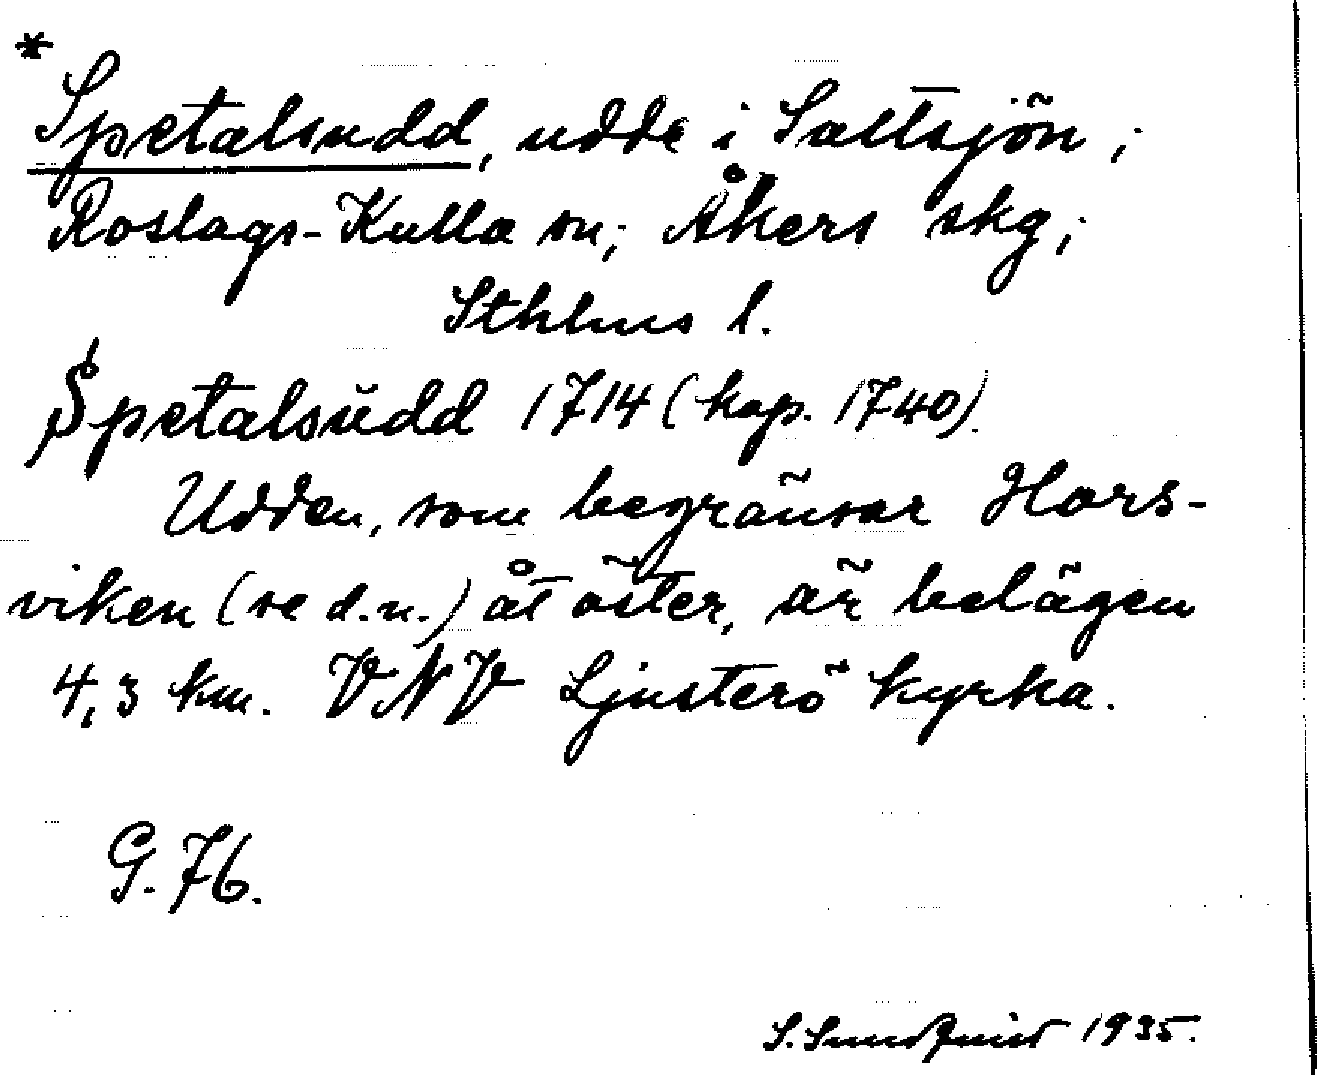 * Spetalsudd, udde i Saltsjön;
Roslags-Kulla sn; Åkers skg;
Sthlms l.
Spetalsudd 1714 (kop. 1740).
Udden, som begränsar Hors-
viken (se d.n.) åt öster, är belägen
4,3 km. VNV Ljusterö kyrka.
G. 76.
S. Sundqvist 1935.